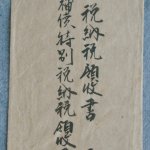 税納税領收書
補償特別税納税領收